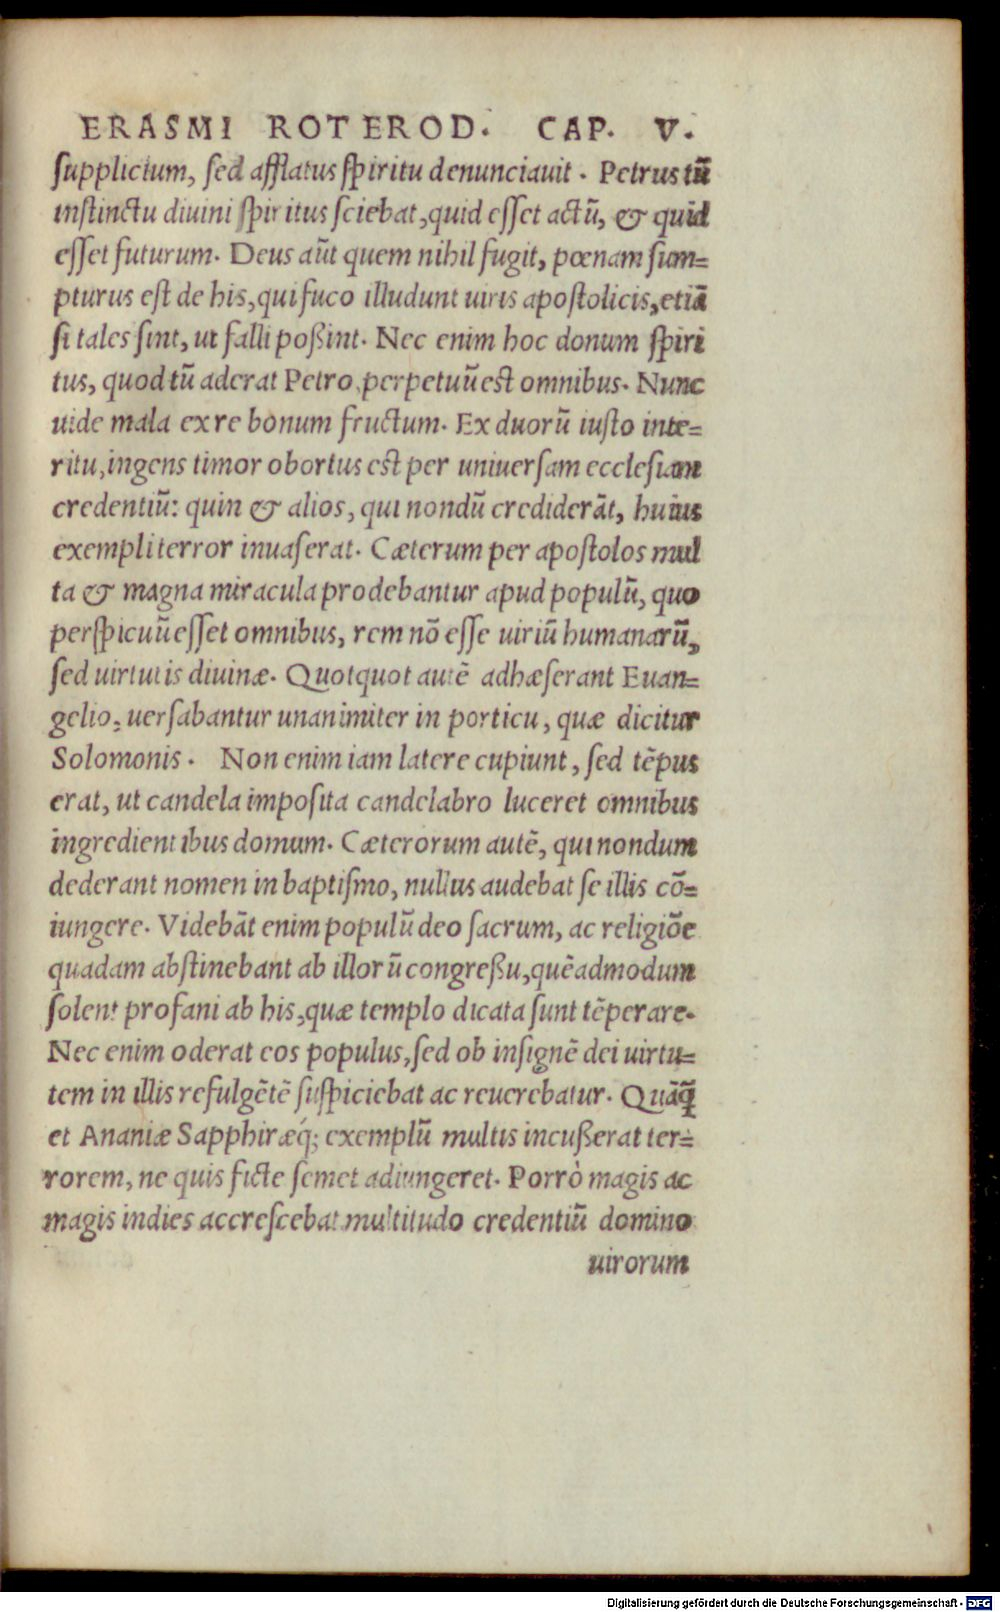 ERASMI ROTEROD. CAP. V.
supplicium, sed afflatus spiritu denunciavit. Petrus tũ
instinctu divini spiritus sciebat, quid esset actũ, & quid
esset futurum. Deus aũt quem nihil fugit, pœnam sum=
pturus est de his, qui fuco illudunt uiris apostolicis, etiã
si tales sint, ut falli poßint. Nec enim hoc donum spiri
tus, quod tũ aderat Petro, perpetuũ est omnibus. Nunc
uide mala ex re bonum fructum. Ex duorũ iusto inte=
ritu, ingens timor obortus est per universam ecclesiam
credentiũ: quin & alios, qui nondũ crediderãt, huius
exempli terror inuaserat. Cæterum per apostolos mul
ta & magna miracula prodebantur apud populũ, quo
perspicuũ esset omnibus, rem nõ esse uiriũ humanarũ,
sed uirtutis divinæ. Quotquot autẽ adhæserant Euan=
gelio, uersabantur unanimiter in porticu, quæ dicitur
Solomonis. Non enim iam latere cupiunt, sed tẽpus
erat, ut candela imposita candelabro luceret omnibus
ingredientibus domum. Cæterorum autẽ, qui nondum
dederant nomen in baptismo, nullus audebat se illis cõ=
iungere. Videbãt enim populũ deo sacrum, ac religiõe
quadam abstinebant ab illorũ congreßu, quẽadmodum
solent profani ab his, quæ templo dicata sunt tẽperare.
Nec enim oderat eos populus, sed ob insignẽ dei uirtu=
tem in illis refulgẽtẽ suspiciebat ac reuerebatur. Quãq̃
et Ananiæ Sapphiræq́; exemplũ multis incußerat ter=
rorem, ne quis ficte semet adiungeret. Porrò magis ac
magis indies accrescebat multitudo credentiũ domino
uirorum
Digitalisierung gefördert durch die Deutsche Forschungsgemeinschaft - DFG